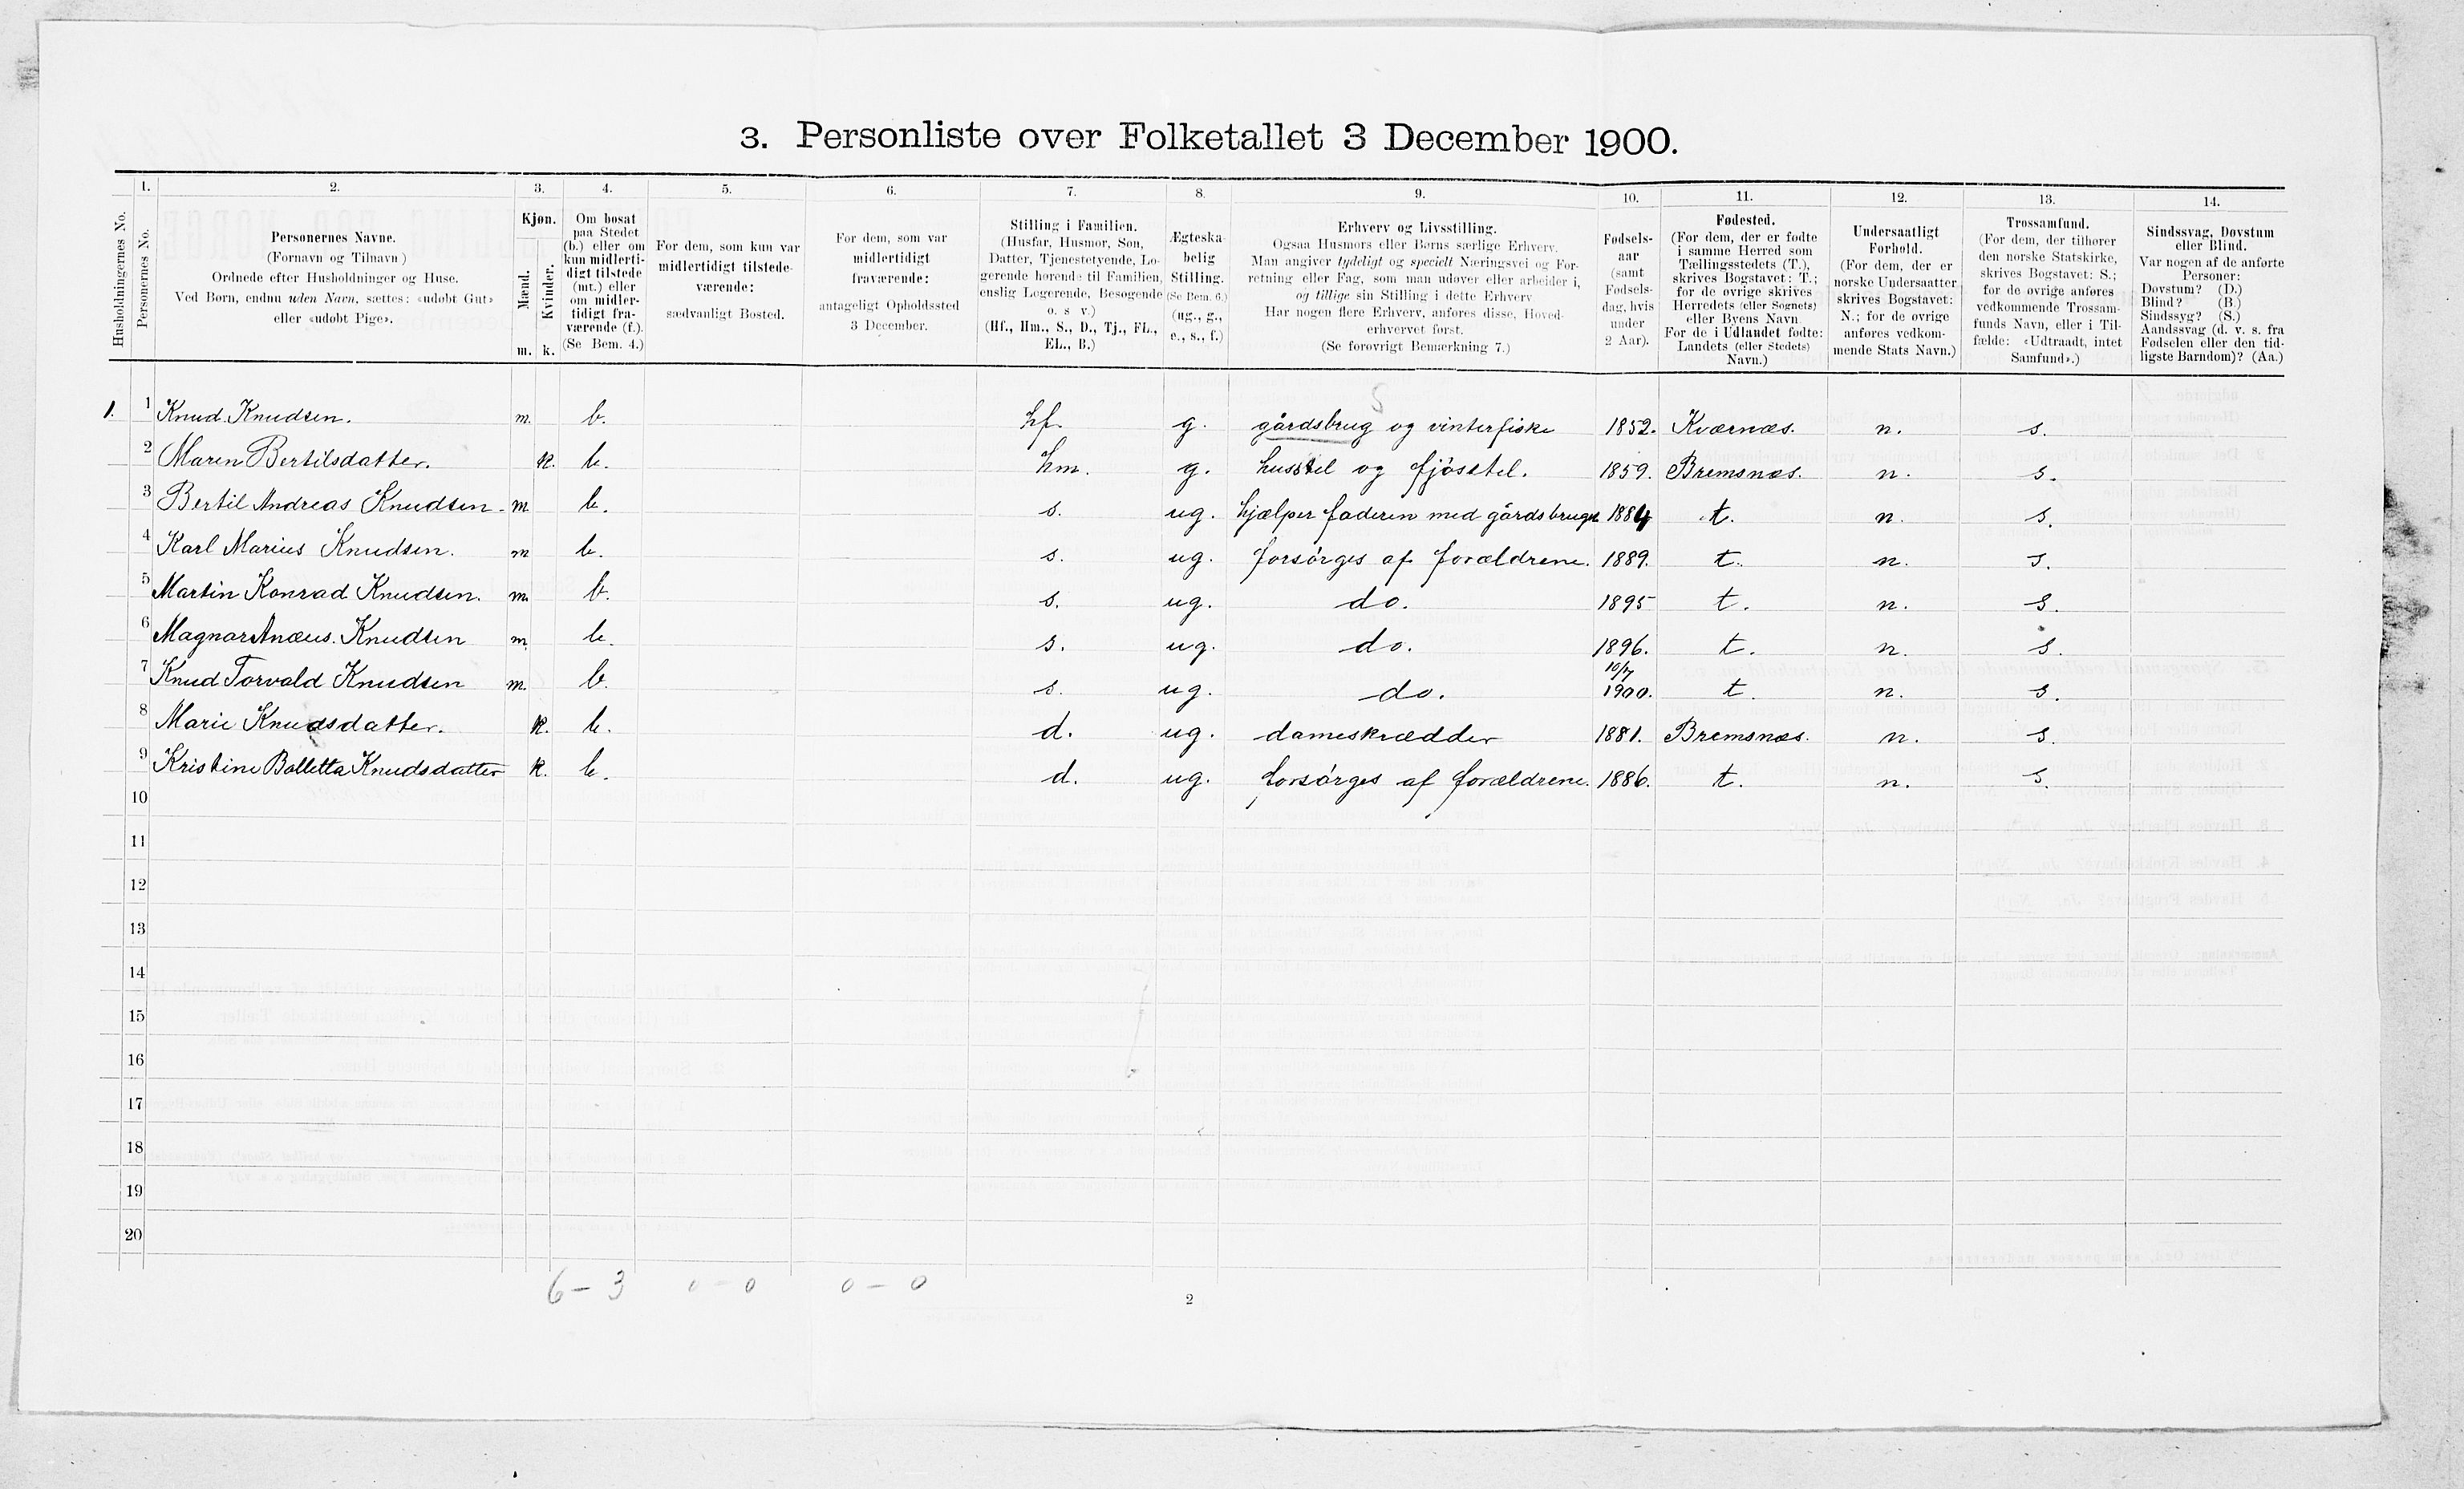 3. Personliste over Folketallet 3 December 1900.
Husholdningernes No.
1.
Personernes No.
2.
Personernes Navne.
(Fornavn og Tilnavn)
Ordnede efter Husholdninger og Huse.
Ved Børn, endnu uden Navn, sættes: «udøbt Gut»
eller «udøbt Pige».
3.
Kjøn.
Mænd.
Kvinder.
m. k.
4.
Om bosat
paa Stedet
(b.) eller om
kun midlerti-
digt tilstede
(mt.) eller
om midler-
tidigt fra-
værende (f.).
(Se Bem. 4.)
5.
For dem, som kun var
midlertidigt tilstede-
værende:
sædvanligt Bosted.
6.
For dem, som var
midlertidigt
fraværende:
antageligt Opholdssted
3 December.
7.
Stilling i Familien.
(Husfar, Husmor, Søn,
Datter, Tjenestetyende, Lo-
gerende hørende til Familien,
enslig Logerende, Besøgende
o. s v.)
(Hf., Hm., S., D., Tj., FL.,
EL., B.)
8.
Ægteska-
belig
Stilling.
(Se Bem. 6.)
(ug., g.,
e., s., f.)
9.
Erhverv og Livsstilling.
Ogsaa Husmors eller Børns særlige Erhverv.
Man angiver tydeligt og specielt Næringsvei og For-
retning eller Fag, som man udøver eller arbeider i,
og tillige sin Stilling i dette Erhverv
Har nogen flere Erhverv, anføres disse, Hoved-
erhvervet først.
(Se forøvrigt Bemærkning 7.)
10.
Fødsels-
aar
(samt
Fødsels-
dag, hvis
under
2 Aar).
11.
Fødested.
(For dem, der er fødte
i samme Herred som
Tællingsstedets (T.),
skrives Bogstavet: T.;
for de øvrige skrives
Herredets (eller Sognets)
eller Byens Navn
For de i Udlandet fødte:
Landets (eller Stedets)
Navn.)
12.
Undersaatligt
Forhold.
(For dem, der er
norske Undersaatter,
skrives Bogstavet:
N.; for de øvrige
anføres vedkom-
mende Stats Navn.)
13.
Trossamfund.
(For dem, der tilhører
den norske Statskirke,
skrives Bogstavet: S.;
for de øvrige anføres
vedkommende Trossam-
funds Navn, eller i Til-
fælde: «Udtraadt, intet
Samfund».)
14.
Sindssvag, Døvstum
eller Blind.
Var nogen af de anførte
Personer:
Døvstum? (D.)
Blind? (B.)
Sindssyg? (S.)
Aandssvag (d. v. s. fra
Fødselen eller den tid-
ligste Barndom)? (Aa.)
1. 1 Knud Knudsen. m. b. hf. g. gårdsbrug og vinterfiske 1852. Kværnæs. n. s.
2 Maren Bertilsdatter. k. b. hm. g. husstel og fjösstel. 1859. Bremsnæs. n. s.
3 Bertil Andreas Knudsen. m b. s. ug. hjælper faderen med gårdsbruget 1884 t. n. s.
4 Karl Marius Knudsen. m b. s. ug. forsörges af forældrene. 1889. t. n. s.
5 Martin Konrad Knudsen. m. b. s. ug. do. 1895 t. n. s.
6 Magnar Anæus. Knudsen m. b. s. ug. do. 1896. t. n. s.
7 Knud Torvald Knudsen m. b. s. ug. do. 10/7 1900. t. n. s.
8 Marie Knudsdatter. k. b. d. ug. dameskrædder 1881. Bremsnæs. n. s.
9 Kristine Bolletta Knudsdatter k. b. d. ug. forsörges af forældrene. 1886. t. n. s.
10
11
12
13
14
15
16
17
18
19
20
6 - 3 0 - 0 0 - 0
2